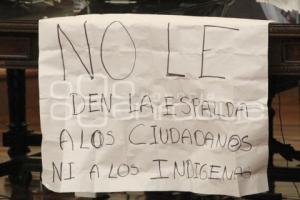 NO LE
DEN LA ESPALDA
A LOS CIUDADANOS
NI A LOS INDIGENAS